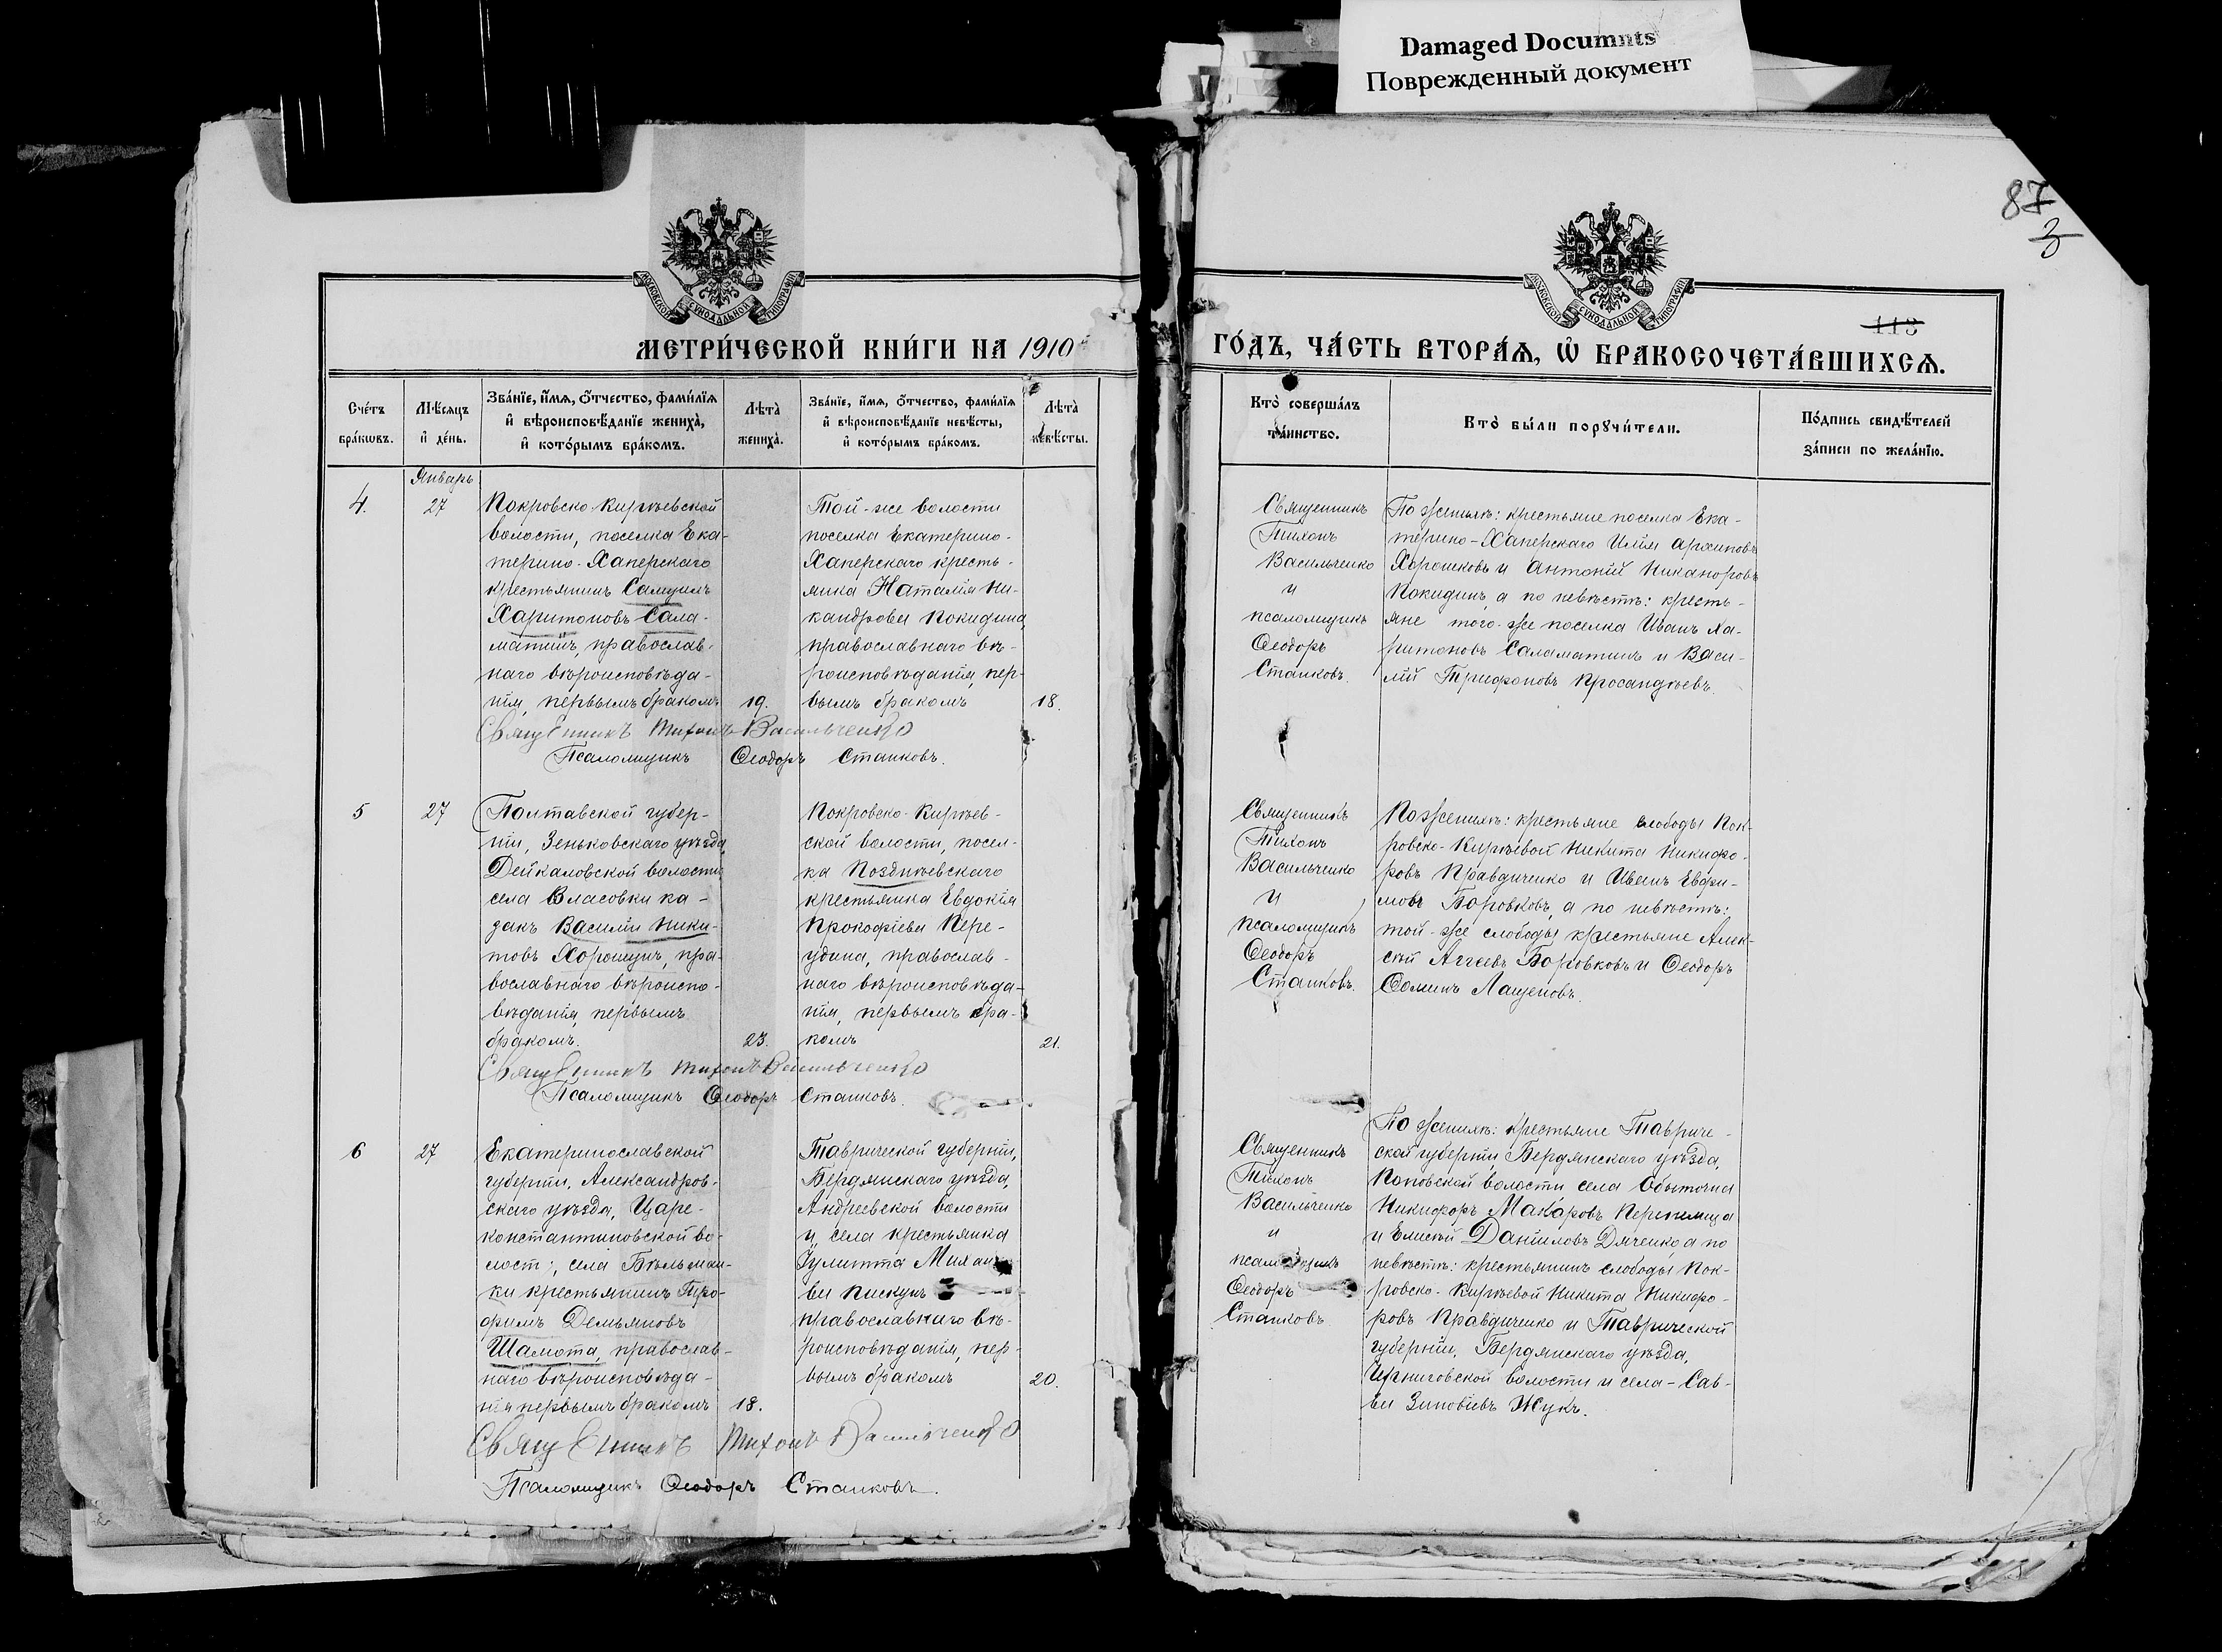 Damaged Documnts
Поврежденный документ
87
3
113
МОСКОВСКОЙ СѴНОДАЛЬНОЙ ТИПОГРАФІИ
МОСКОВСКОЙ СѴНОДАЛЬНОЙ ТИПОГРАФІИ
МЕТРИ́ЧЕСКОЙ КНИ́ГИ НА 1910
ГО́ДЪ, ЧА́СТЬ ВТОРА́Ѧ, Ѡ҆ БРАКОСОЧЕТА́ВШИХСѦ.
Сче́тъ бра́кѡвъ.
Мѣ́сѧцъ и҆ де́нь.
Зва́нїе, и҆́мѧ, ѻ҆́тчество, фами́лїѧ
и҆ вѣроисповѣ́данїе жениха̀,
и҆ кото́рымъ бра́комъ.
Лѣ́та̀ жениха̀.
Зва́нїе, и҆́мѧ, ѻ҆́тчество, фами́лїѧ
и҆ вѣроисповѣ́данїе невѣ́сты,
и҆ кото́рымъ бра́комъ.
Лѣ́та̀ невѣ́сты.
Кто̀ соверша́лъ
та́инство.
Кто̀ бы́ли порꙋчи́тели.
По́дпись свидѣ́телей
за́писи по жела́нїю.
Январь
4.
27
Покровско-Кирѣевской
волости, поселка Ека-
терино-Хаперскаго
крестьянинъ Самуилъ
Харитоновъ Сала-
матинъ, православ-
наго вѣроисповѣда-
нія, первымъ бракомъ
19.
Той-же волости
поселка Екатерино-
Хаперскаго кресть-
янка Наталія Ни-
кандрова Покидина,
православнаго вѣ-
роисповѣданія, пер-
вымъ бракомъ
18.
Священникъ
Тихонъ
Васильченко
и
псаломщикъ
Ѳеодоръ
Станковъ.
По женихѣ: крестьяне поселка Ека-
терино-Хаперскаго Илія Архиповъ
Хорошковъ и Антоній Никаноровъ
Покидинъ, а по невѣстѣ: кресть-
яне того-же поселка Иванъ Ха-
ритоновъ Саламатинъ и Васи-
лій Трифоновъ Просандѣевъ.
Священникъ Тихонъ Васильченко
Псаломщикъ Ѳеодоръ Станковъ.
5
27
Полтавской губер-
ніи, Зеньковскаго уѣзда,
Дейкаловской волости,
села Власовки ка-
закъ Василій Ники-
товъ Хорошунъ, пра-
вославнаго вѣроиспо-
вѣданія, первымъ
бракомъ.
23.
Покровско-Кирѣев-
ской волости, посел-
ка Позднѣевскаго
крестьянка Евдокія
Прокофіева Пере-
удина, православ-
наго вѣроисповѣда-
нія, первымъ бра-
комъ
21.
Священникъ
Тихонъ
Васильченко
и
псаломщикъ
Ѳеодоръ
Станковъ.
По женихѣ: крестьяне слободы Пок-
ровско-Кирѣевой Никита Никифо-
ровъ Правдиченко и Иванъ Евфи-
мовъ Боровковъ, а по невѣстѣ:
той-же слободы крестьяне Алек-
сѣй Аггеевъ Боровковъ и Ѳеодоръ
Ѳоминъ Лащеновъ.
Священникъ Тихонъ Васильченко
Псаломщикъ Ѳеодоръ Станковъ.
6
27
Екатеринославской
губерніи, Александров-
скаго уѣзда, Царе-
константиновской во-
лост:, села Бѣльман-
ки крестьянинъ Тро-
фимъ Демьяновъ
Шамота, православ-
наго вѣроисповѣда-
нія первымъ бракомъ
18.
Таврической губерніи,
Бердянскаго уѣзда,
Андреевской волости
и села крестьянка
Іулитта Михаи
ва Пискунъ
православнаго вѣ-
роисповѣданія, пер-
вымъ бракомъ
20.
Священникъ
Тихонъ
Васильченко
и
псаломщикъ
Ѳеодоръ
Станковъ
По женихѣ: крестьяне Тавриче-
ской губерніи, Бердянскаго уѣзда,
Поповской волости села Обыточна
Никифоръ Макаровъ Перепелица
и Елисѣй Даніиловъ Дяченко, а по
невѣстѣ: крестьянинъ слободы Пок-
ровско-Кирѣевой Никита Никифо-
ровъ Правдиченко и Таврической
губерніи, Бердянскаго уѣзда,
Черниговской волости и села-Сав-
ва Зиновіевъ Жукъ.
Священникъ Тихонъ Васильченко
Псаломщикъ Ѳеодоръ Станковъ.